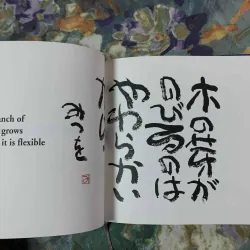 anch of
grows
it is flexible
木の芽が
のびるのは
やわらかい
みつを